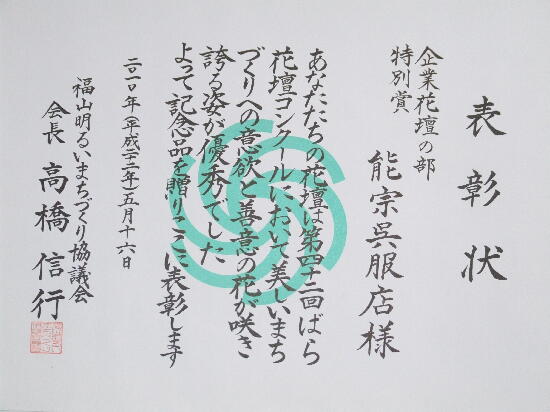 表彰状
企業花壇の部
特別賞
能宗呉服店様
あなたたちの花壇は第四十二回ばら
花壇コンクールにおいて美しいまち
づくりへの意欲と善意の花が咲き
誇る姿が優秀でした
よって記念品を贈りここに表彰します
二〇一〇年(平成二十二年)五月十六日
福山明るいまちづくり協議会
会長 高橋信行